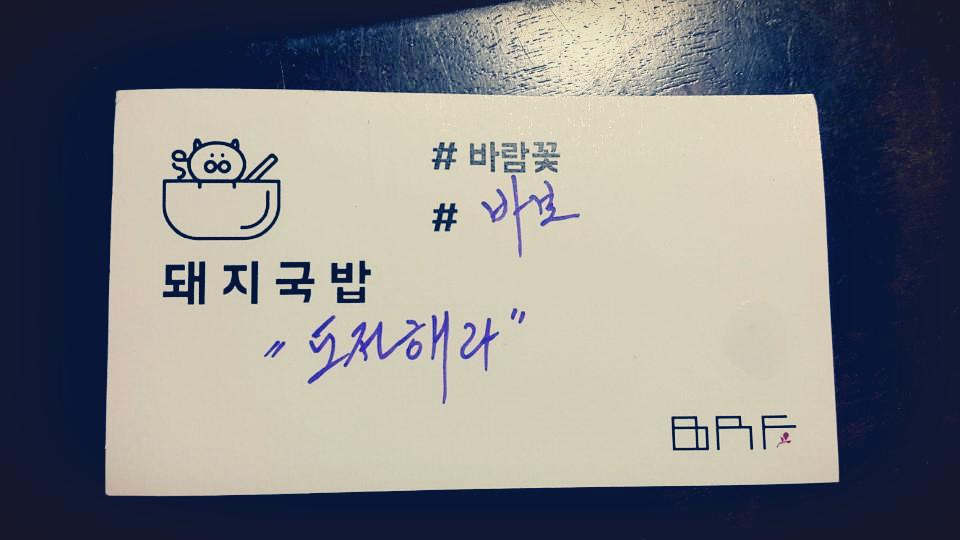 # 바람꽃
# 바보
돼지국밥
"도전해라"
BAF